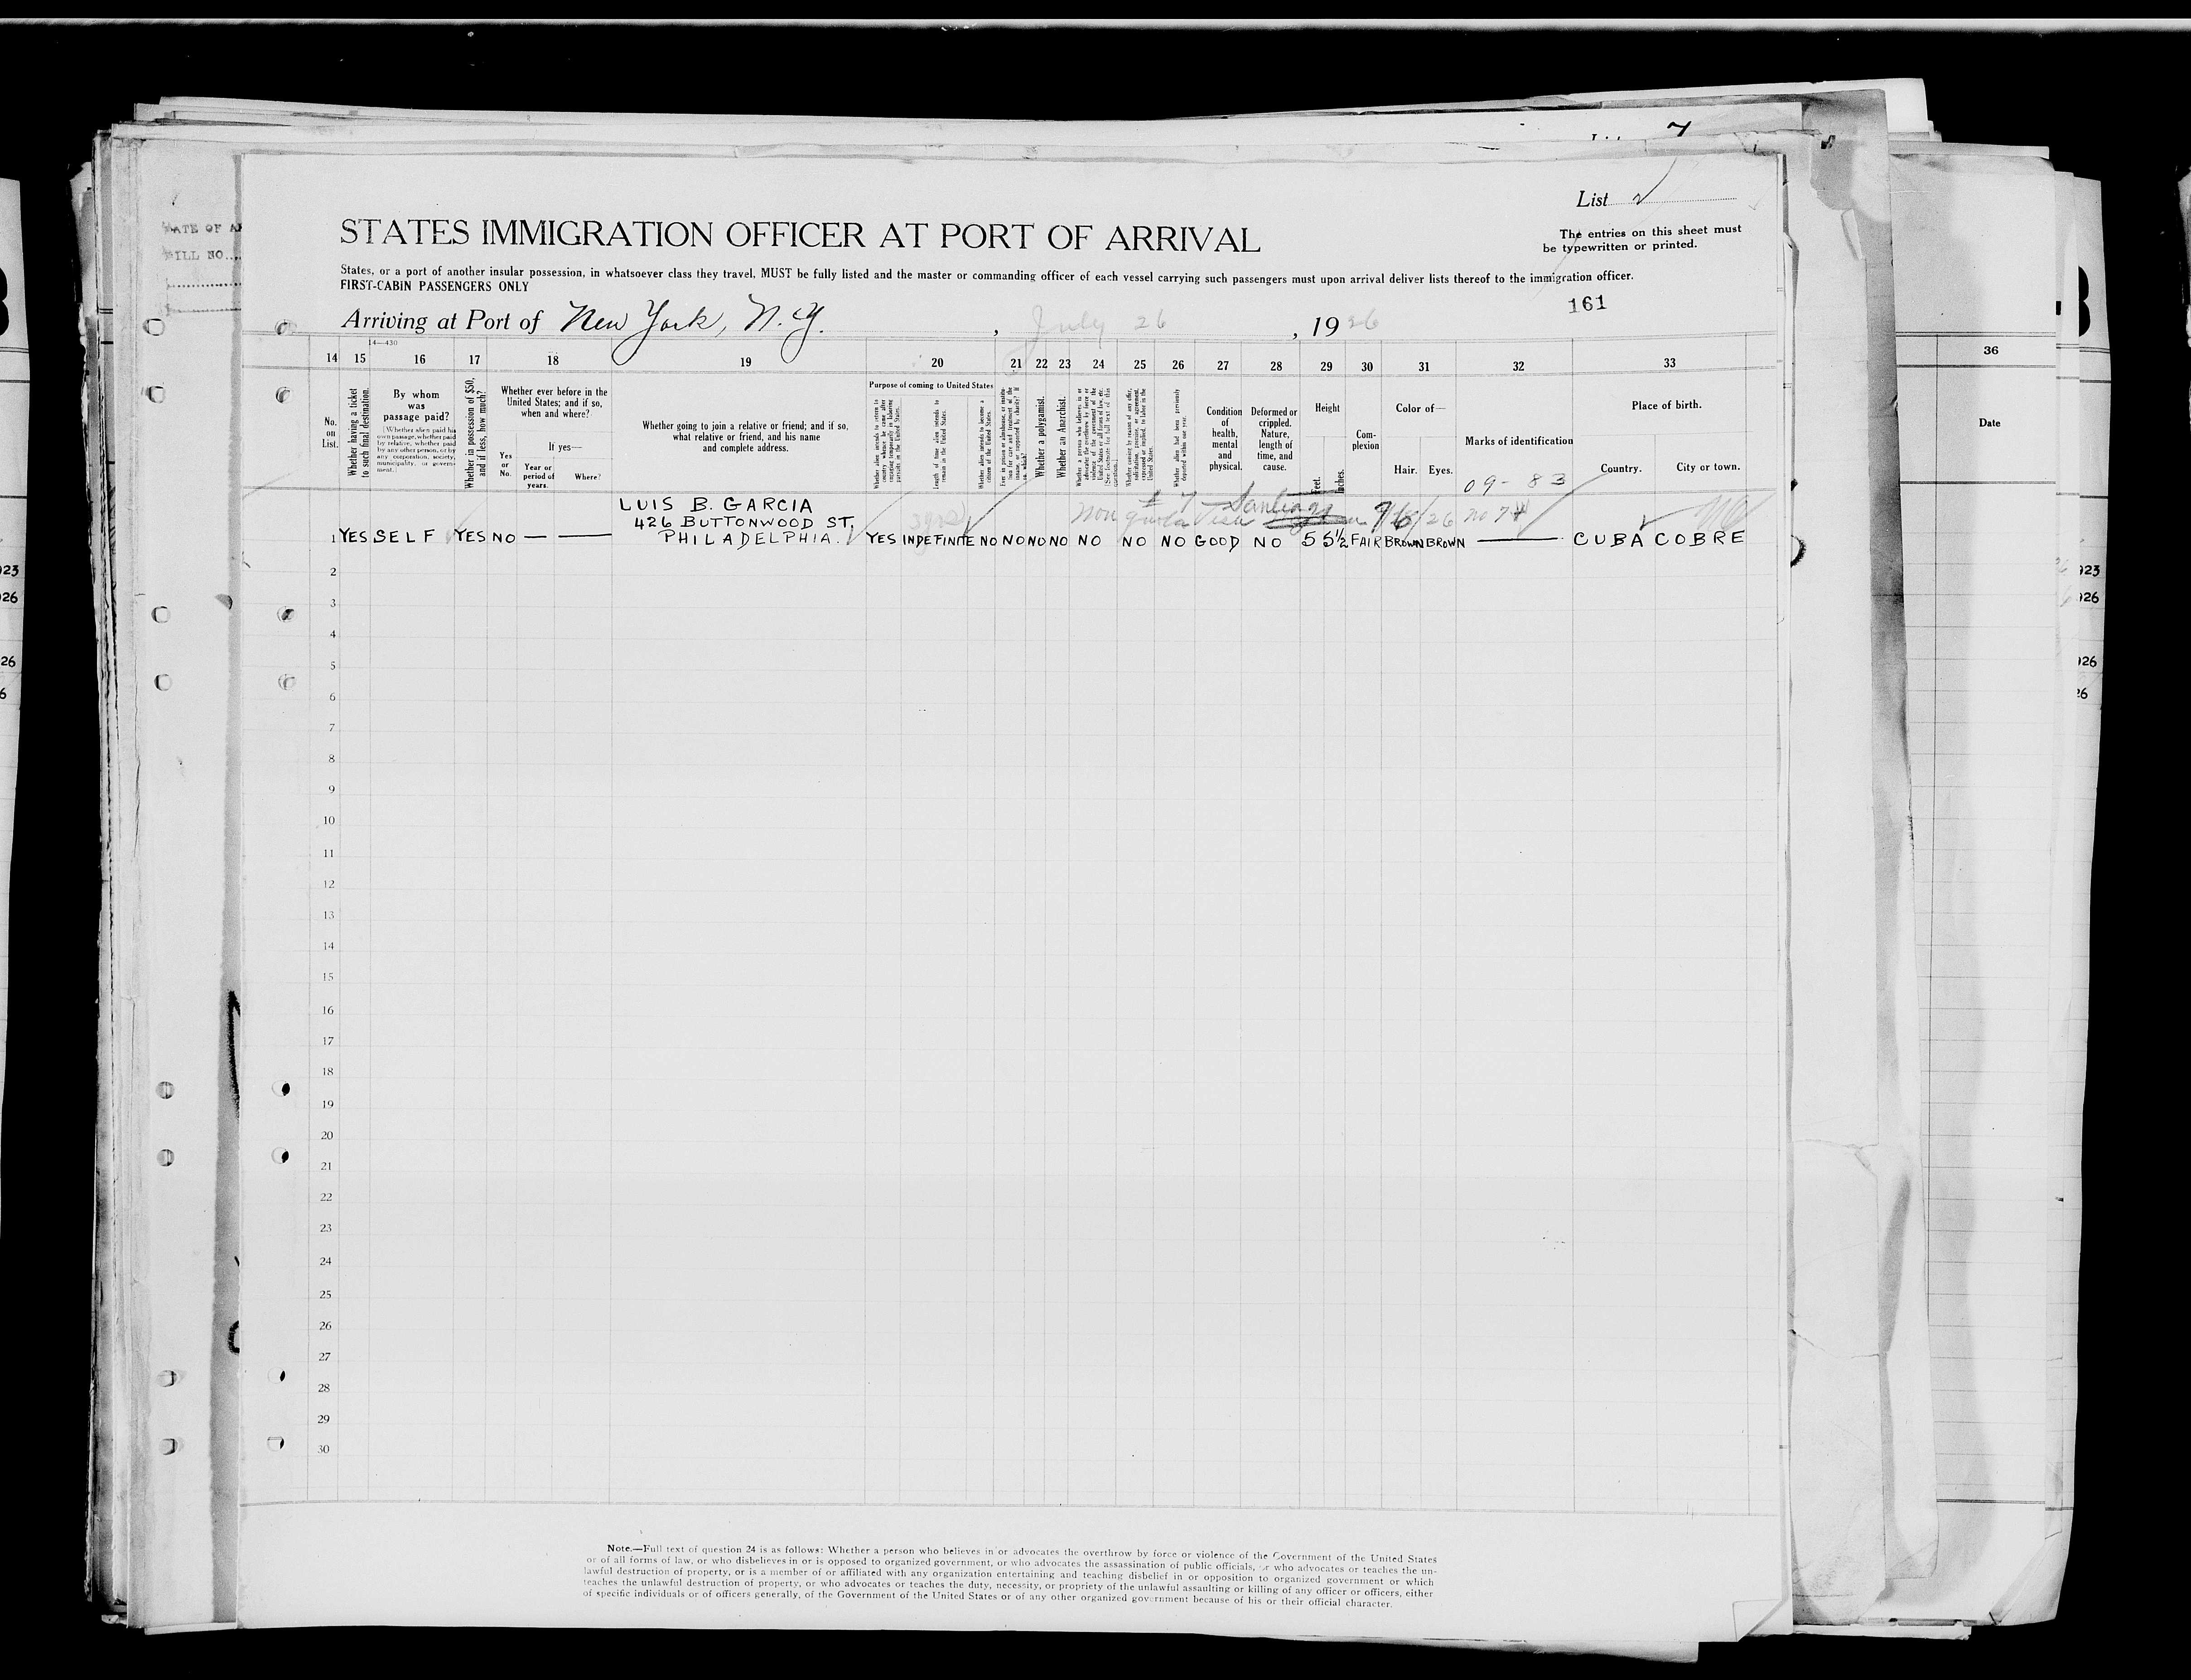 List 2
STATES IMMIGRATION OFFICER AT PORT OF ARRIVAL
The entries on this sheet must
be typewritten or printed.
States, or a port of another insular possession, in whatsoever class they travel, MUST be fully listed and the master or commanding officer of each vessel carrying such passengers must upon arrival deliver lists thereof to the immigration officer.
FIRST-CABIN PASSENGERS ONLY
161
Arriving at Port of New York, N.Y. , July 26 , 1926
14—430
14 15 16 17 18 19 20 21 22 23 24 25 26 27 28 29 30 31 32 33
No. on List.
Whether having a ticket to such final destination.
By whom was passage paid?
[Whether alien paid his own passage, whether paid by relative, whether paid by any other person, or by any corporation, society, municipality, or government.]
Whether in possession of $50, and if less, how much?
Whether ever before in the United States; and if so, when and where?
Yes or No.
If yes—
Year or period of years.
Where?
Whether going to join a relative or friend; and if so, what relative or friend, and his name and complete address.
Purpose of coming to United States
Whether alien intends to return to country whence he came after engaging temporarily in laboring pursuits in the United States.
Length of time alien intends to remain in the United States.
Whether alien intends to become a citizen of the United States.
Ever in prison or almshouse, or institution for care and treatment of the insane, or supported by charity? If so, which?
Whether a polygamist.
Whether an Anarchist.
Whether coming by reason of any offer, solicitation, promise, or agreement, expressed or implied, to labor in the United States.
Whether alien had been previously deported within one year.
Condition of health, mental and physical.
Deformed or crippled. Nature, length of time, and cause.
Height
Feet. Inches.
Complexion
Color of—
Hair. Eyes.
Marks of identification
Place of birth.
Country. City or town.
09-83
LUIS B. GARCIA
426 BUTTONWOOD ST.
PHILADELPHIA.
3 yrs
# 7 Santiago
Non quota Visa
26 no 74
1 YES SELF YES NO — — YES INDEFINITE NO NO NO NO NO NO NO GOOD NO 5 5½ FAIR BROWN BROWN — CUBA COBRE
2
3
4
5
6
7
8
9
10
11
12
13
14
15
16
17
18
19
20
21
22
23
24
25
26
27
28
29
30
Note.—Full text of question 24 is as follows: Whether a person who believes in or advocates the overthrow by force or violence of the Government of the United States
or of all forms of law, or who disbelieves in or is opposed to organized government, or who advocates the assassination of public officials, or who advocates or teaches the un-
lawful destruction of property, or is a member of or affiliated with any organization entertaining and teaching disbelief in or opposition to organized government or which
teaches the unlawful destruction of property, or who advocates or teaches the duty, necessity, or propriety of the unlawful assaulting or killing of any officer or officers, either
of specific individuals or of officers generally, of the Government of the United States or of any other organized government because of his or their official character.
36
Date